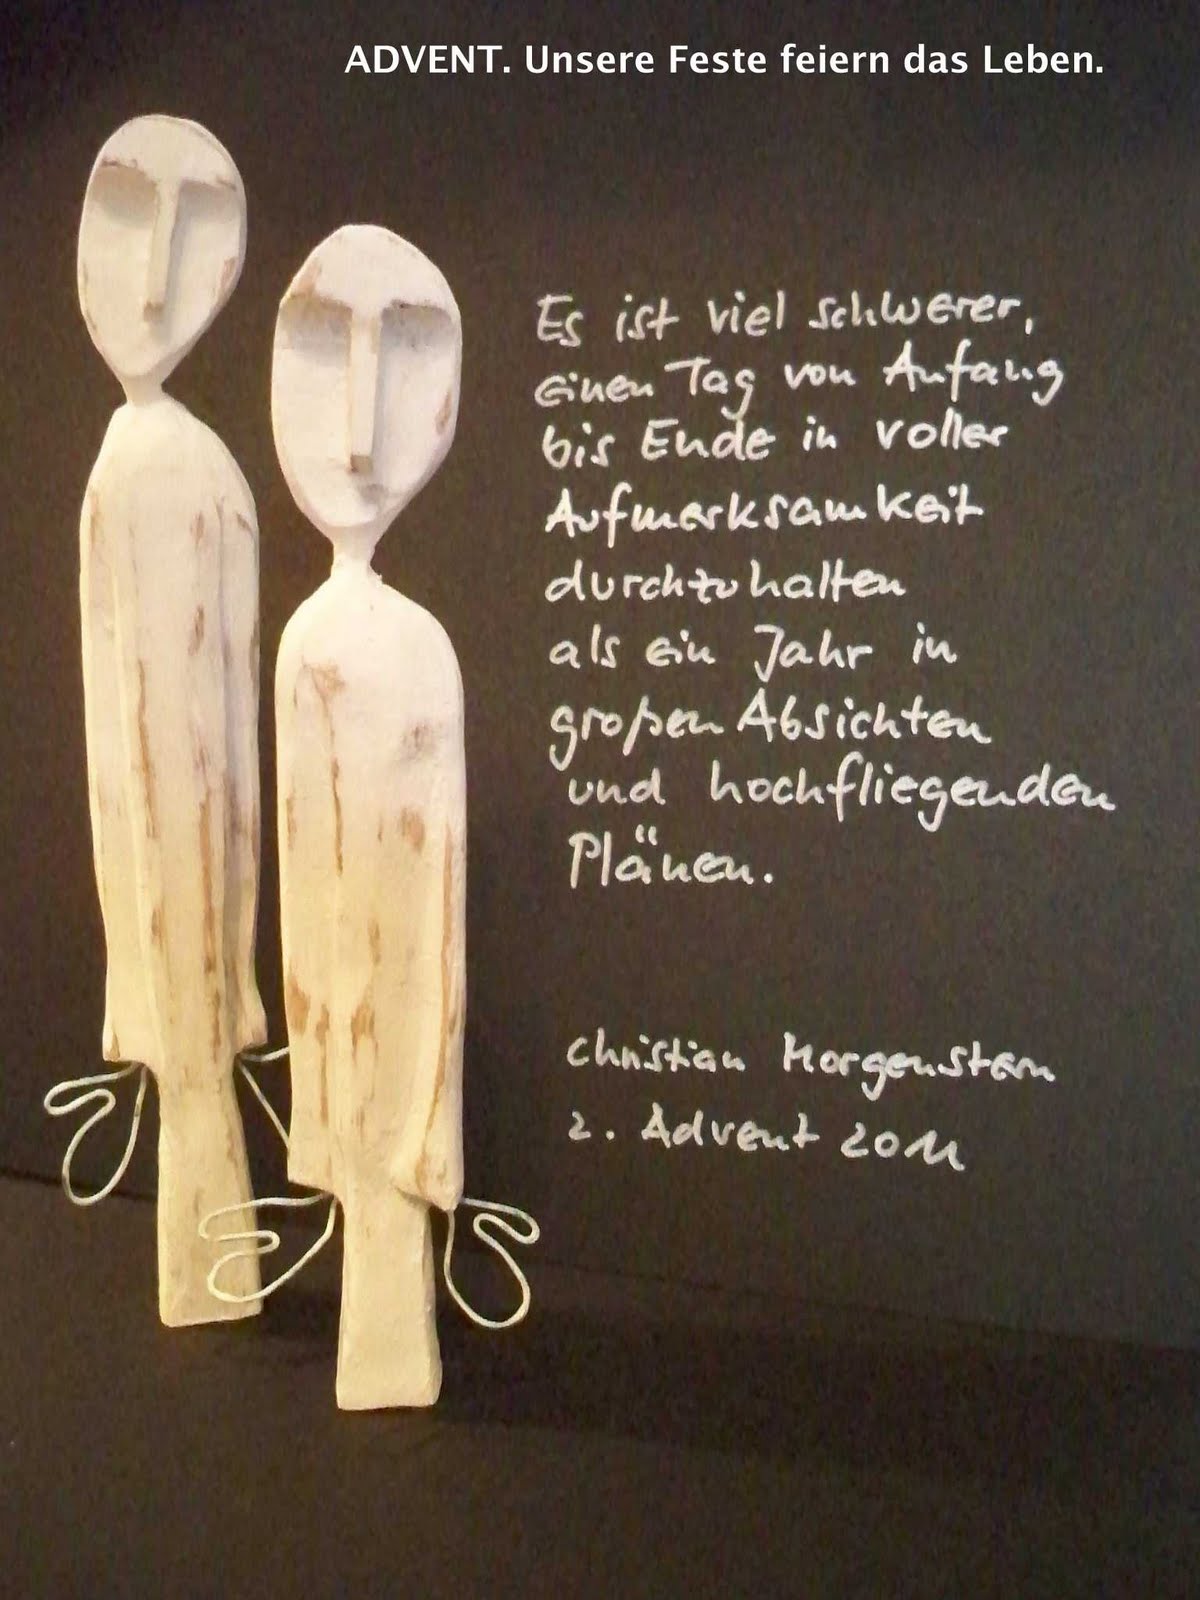 ADVENT. Unsere Feste feiern das Leben.
Es ist viel schwerer,
einen Tag von Anfang
bis Ende in voller
Aufmerksamkeit
durchzuhalten
als ein Jahr in
großen Absichten
und hochfliegenden
Plänen.
Christian Morgenstern
2. Advent 2011